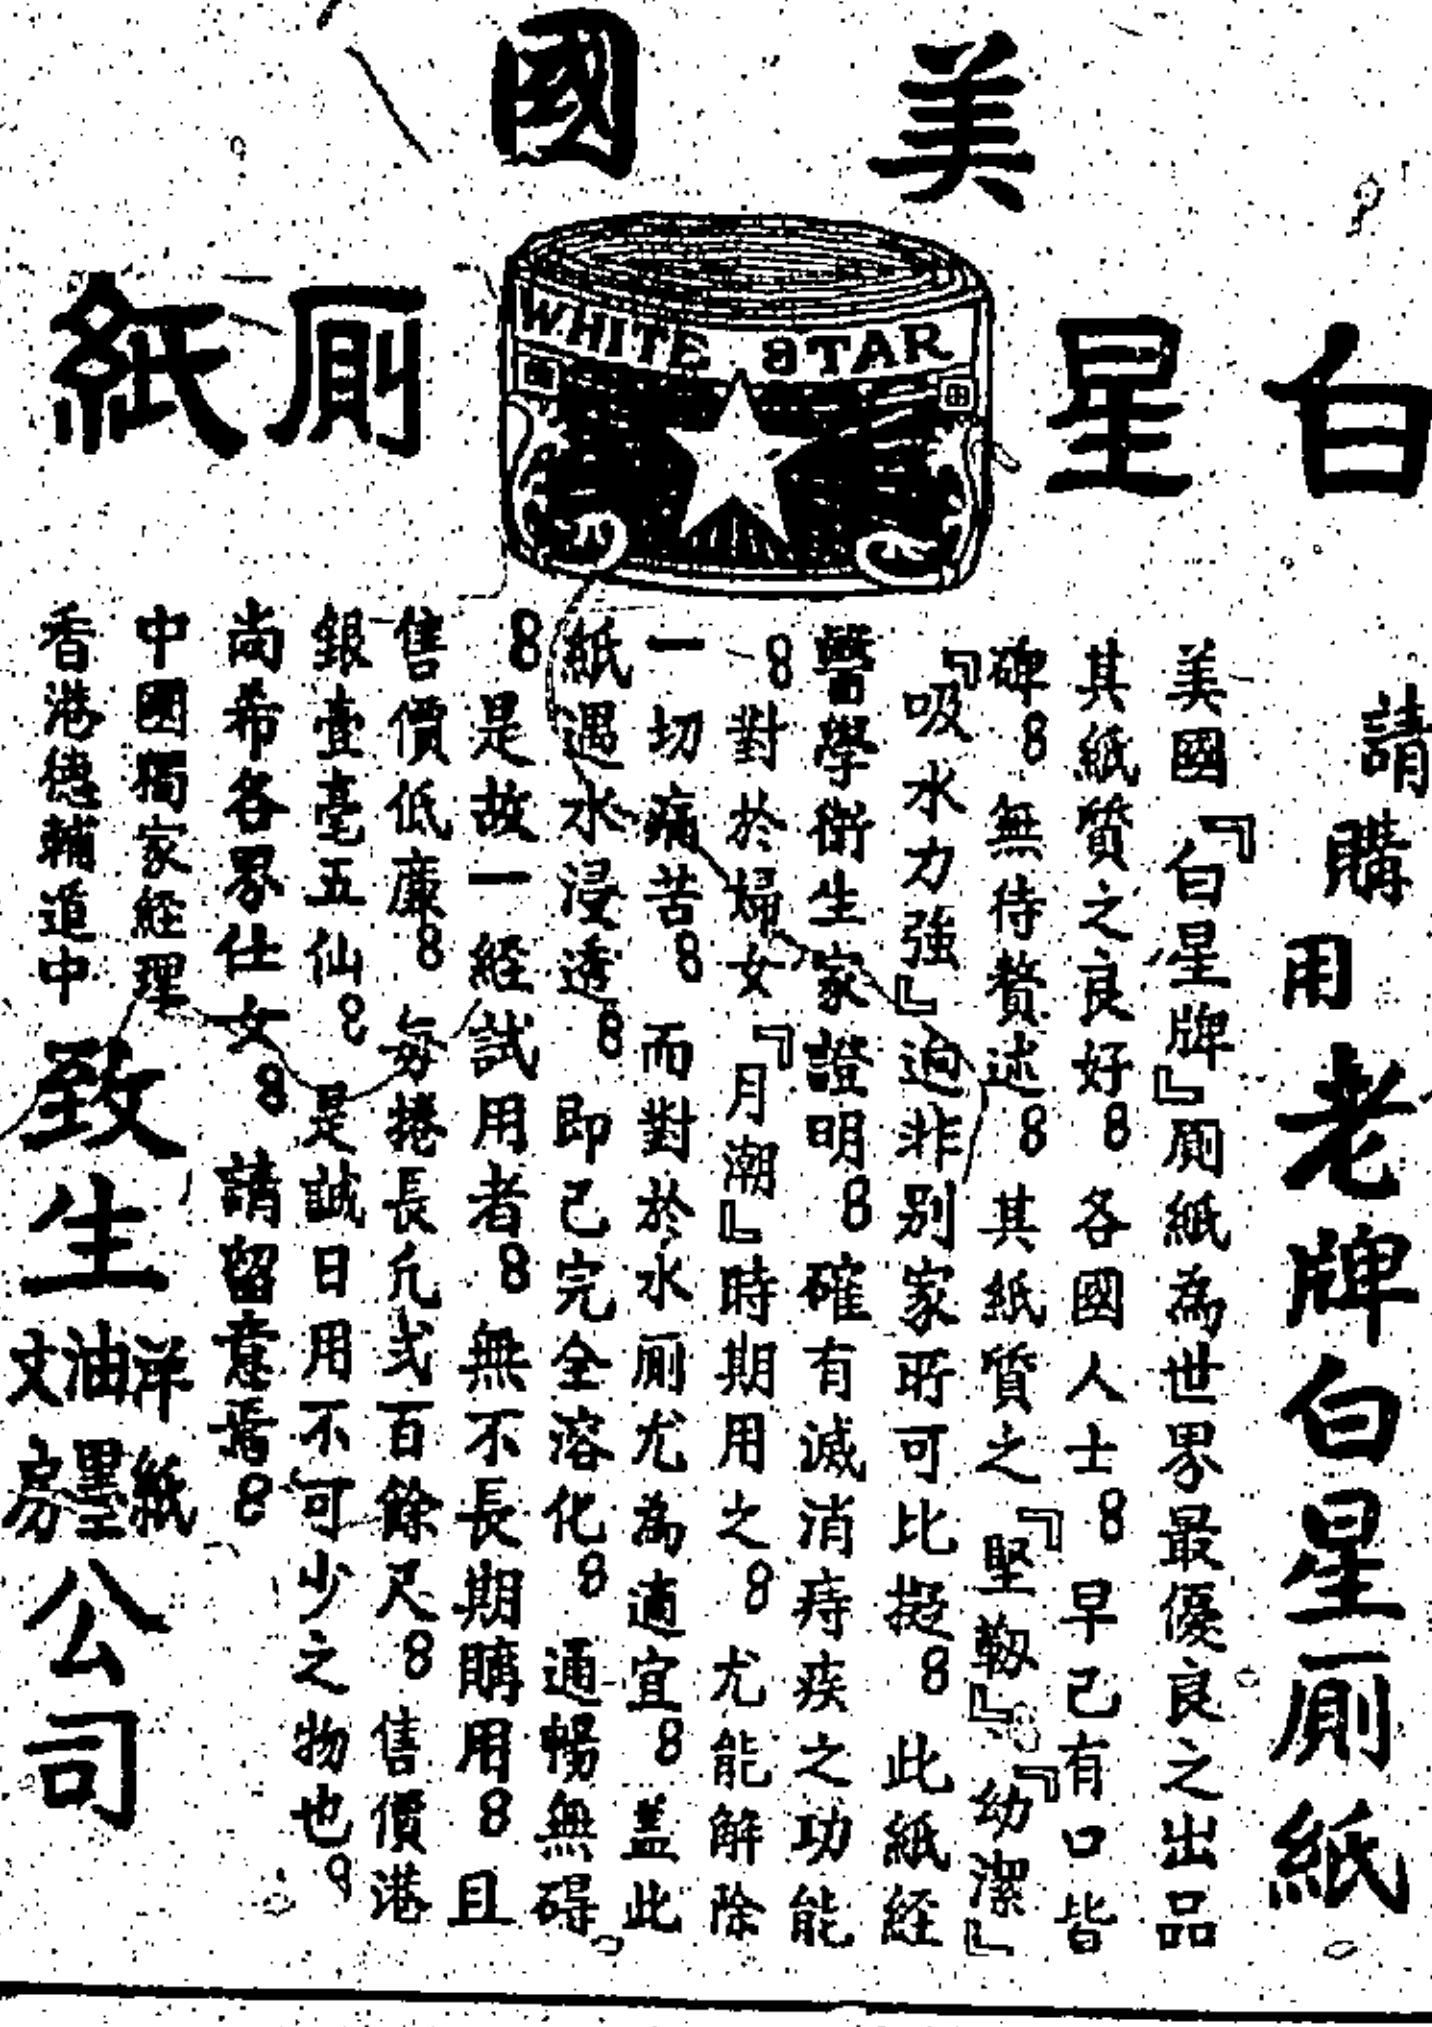 美國
白星廁紙
WHITE STAR
請購用老牌白星廁紙
美國『白星牌』廁紙為世界最優良之出品
其紙質之良好8各國人士8早已有口皆
碑8無待贅述8其紙質之『堅韌』、『幼潔』
『吸水力強』迥非別家所可比擬8此紙經
醫學衛生家證明8確有滅消痔疾之功能
8對於婦女『月潮』時期用之8尤能解除
一切痛苦8而對於水廁尤為適宜8蓋此
紙遇水浸透8即已完全溶化8通暢無碍。
8是故一経試用者8無不長期購用8且
售價低廉8每捲長凢弍百餘尺8售價港
銀壹毫五仙8是誠日用不可少之物也8
尚希各界仕女8請留意焉8
中國獨家経理
香港德輔道中
致生洋紙油墨文房公司